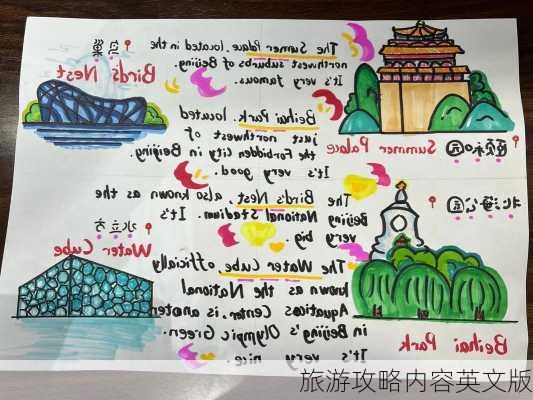 鸟巢
Bird's Nest
The Summer Palace, located in the
northwest suburbs of Beijing.
It's very famous.
颐和园
Summer Palace
Beihai Park, located
just northwest of
the Forbidden City in Beijing
It's very good.
The Bird's Nest, also known as the
Beijing National Stadium. It's
very big.
北海公园
Beihai Park
水立方
Water Cube
The Water Cube, officially
known as the National
Aquatics Center, is
in Beijing's Olympic Green.
It's very nice.
旅游攻略内容英文版